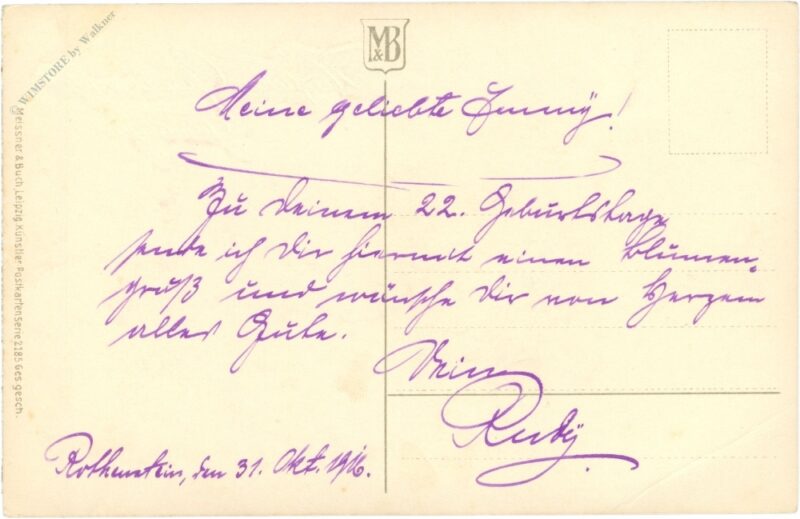 M&B
Meine geliebte Jenny!
Zu Deinem 22. Geburtstage
sende ich Dir hiermit einen Blumen-
gruß und wünsche Dir von Herzen
alles Gute.
Dein
Rudÿ.
Rothenstein, den 31. Okt. 1916.
© WIMSTORE by Walkner
Meissner & Buch, Leipzig. Künstler-Postkarten Serie 2185 Ges. gesch.